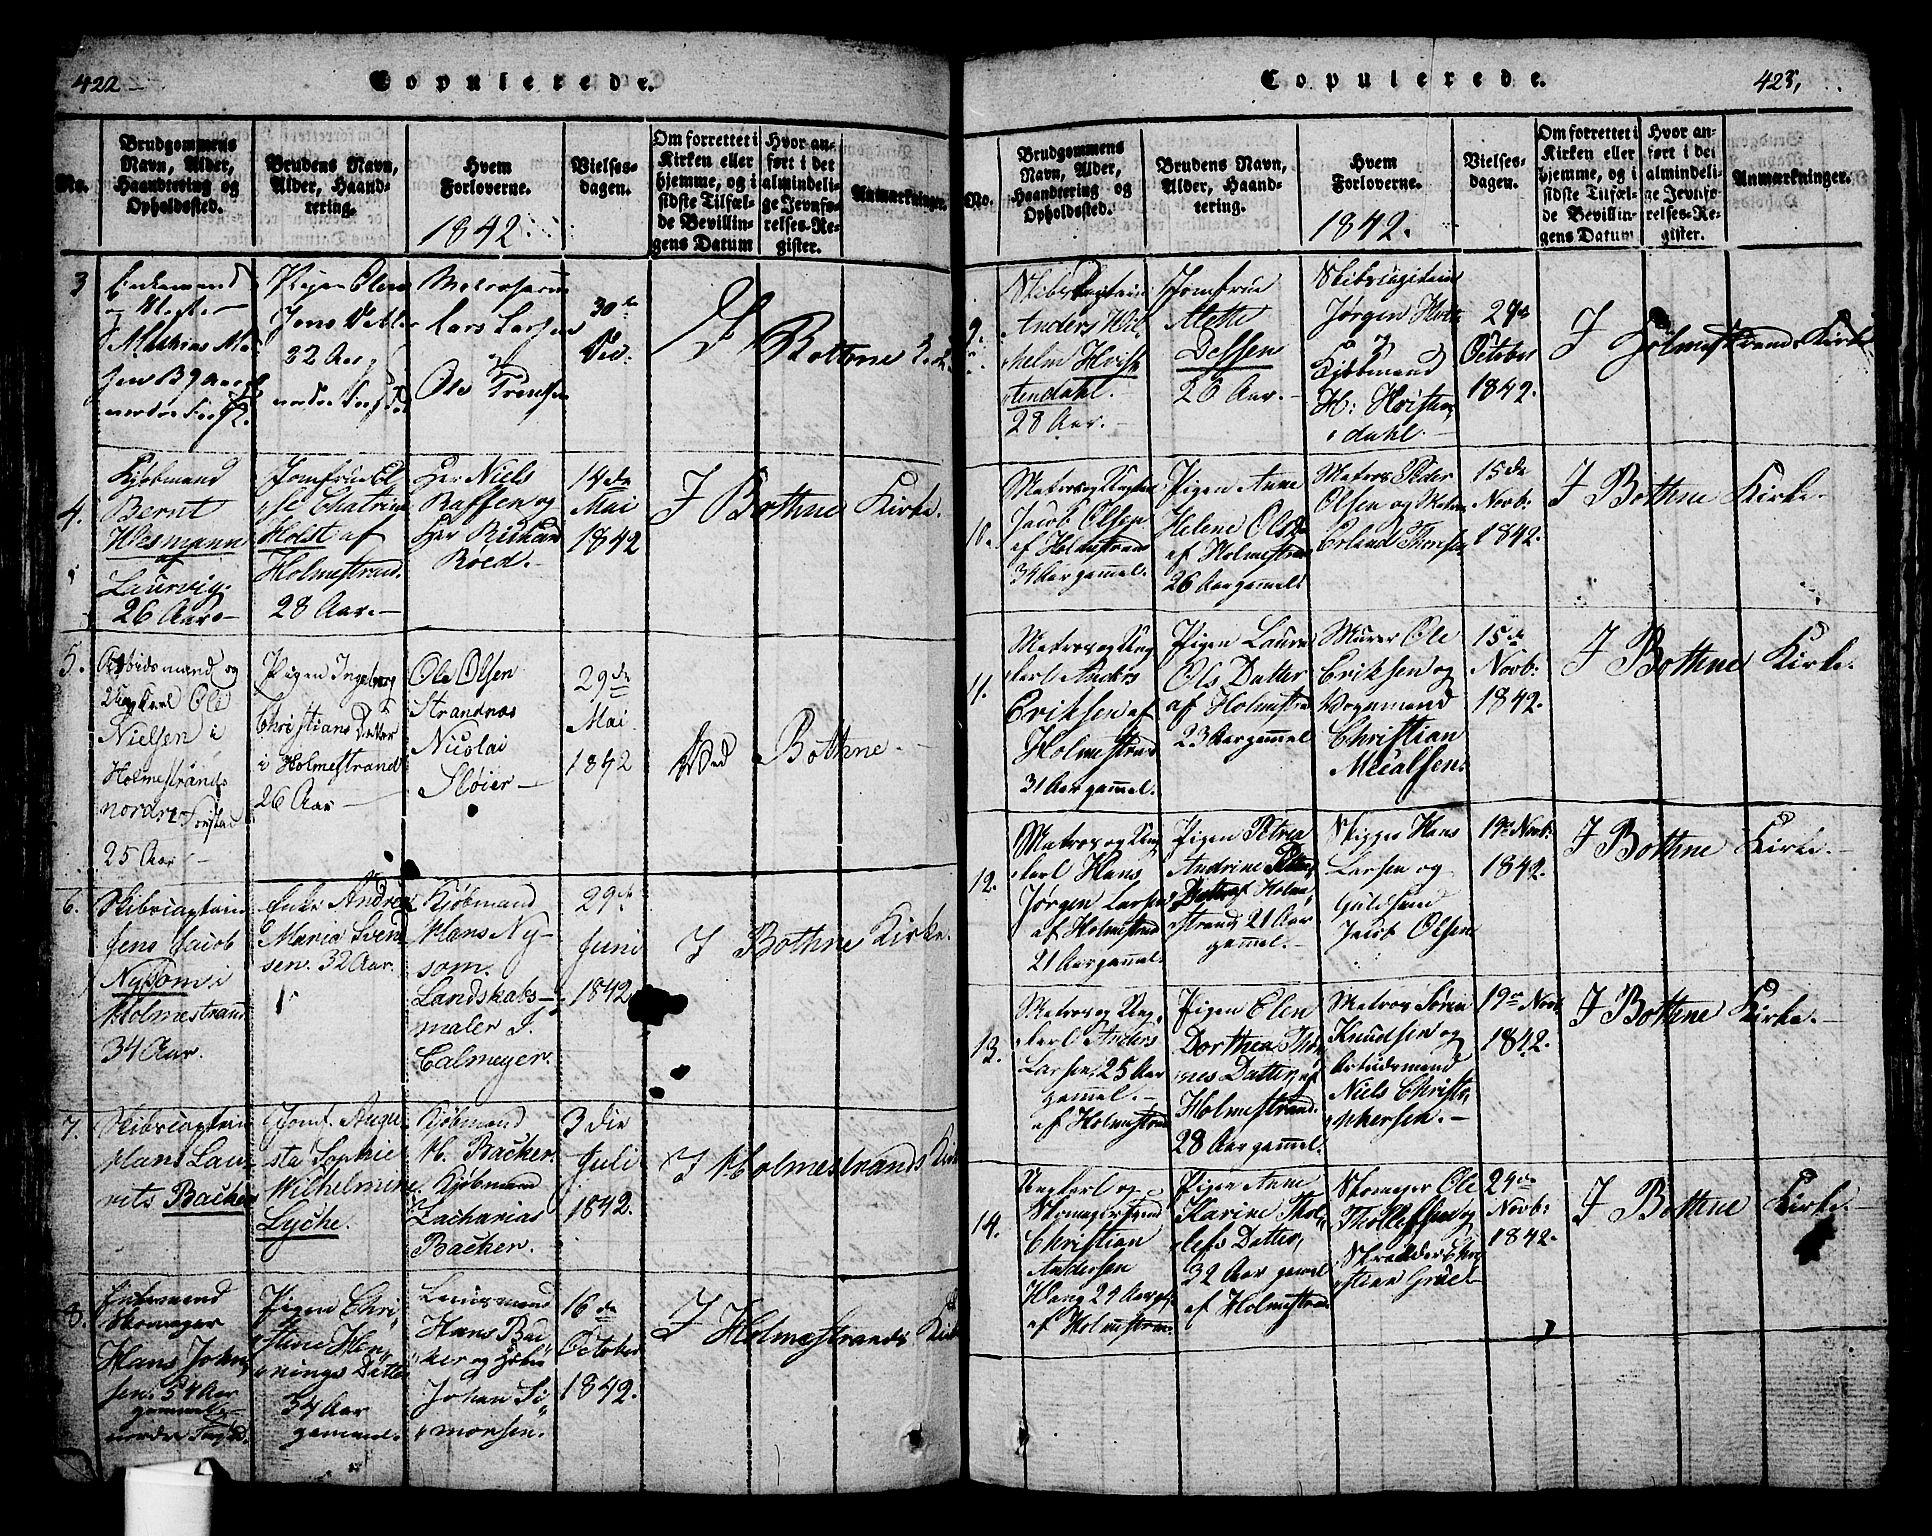 422
Copulerede.
No.
Brudgommens
Navn, Alder,
Haandtering og
Opholdssted.
Brudens Navn,
Alder, Haand-
tering.
Hvem
Forloverne.
1842
Vielses-
dagen.
Om forrettet i
Kirken eller
hjemme, og i
sidste Tilfæl-
de Bevillin-
gens Datum
Hvor an-
ført i det
almindeli-
ge Jevnfø-
relses-Re-
gister.
Anmærkninger.
3
Enkemand
Mathias
Pigen Olea
Jens Datter
32 Aar
Lars Larsen
Ole
30te
Bothne
4.
Kjøbmand
Bernt
Wesmann
af
Laurvig.
26 Aar.
Jomfrue El-
se Chatrine
Holst af
Holmestrand.
28 Aar.
Her Niels
Raffen og
Her Richard
Röed.
14de
Mai
1842
I Bothne Kirke.
5.
Arbeidsmand og
Ungkarl Ole
Nielsen i
Holmestrands
nordre Forstad
25 Aar
Pigen Ingeborg
Christians Datter
i Holmestrand
26 Aar
Ole Olsen
Strandnæs
Nicolai
Sløier
29de
Mai
1842
Ved Bothne
6.
Skibscaptein
Jens Jacob
Nysom i
Holmestrand
34 Aar.
Enke Andrea
Maria Svend
sen. 32 Aar.
Kjöbmand
Hans Ny-
som.
Landskabs-
maler J.
Calmeyer.
29de
Juni
1842
I Bothne Kirke.
7.
Skibscaptein
Hans Lau-
rits Bacher
Jomf. Augu
sta Sophie
Wilhelmine
Lyche.
Kjöbmand
H. Bacher.
Kjöbmand
Zacharias
Bacher.
3 die
Juli
1842.
I Holmestrands Kirke
8.
Enkemand
Skomager
Hans Johan
sen. 54 Aar
gammel
nordre
Pigen Chri-
stine Hen-
nings Datter
34 Aar
gammel.
Lensmand
Hans Bac
ker og
Johan Si-
monsen.
16de
October
1842.
I Holmestrands Kirke
Copulerede.
423,
No.
Brudgommens
Navn, Alder,
Haandtering og
Opholdssted.
Brudens Navn,
Alder, Haand-
tering.
Hvem
Forloverne.
1842.
Vielses-
dagen.
Om forrettet i
Kirken eller
hjemme, og i
sidste Tilfæl-
de Bevillin-
gens Datum
Hvor an-
ført i det
almindeli-
ge Jevnfø-
relses-Re-
gister.
Anmærkninger.
9.
Skibscaptein
Anders Wil
helm Hvist
endahl.
28 Aar.
Jomfrue
Alethe
Dessen
26 Aar.
Skibscaptein
Jørgen
Kjöbmand
H: Hvisten
dahl.
29de
October
1842.
I Holmestrands Kirke
10.
Matros og Ungkarl
Jacob Olsen
af Holmestrand
34 Aar gammel.
Pigen Anne
Helene Ols Dr
af Holmestrand
26 Aar gammel
Matros Peder
Olsen og Matros
Erland Thoresen
15de
Novb:
1842.
I Bothne Kirke.
11.
Matros og Ung
karl Anders
Eriksen af
Holmestrand
31 Aar gammel.
Pigen Laura
Ols Datter
af Holmestrand
23 Aar gammel
Murer Ole
Eriksen og
Vognmand
Christian
Micalsen.
15de
Novb:
1842.
I Bothne Kirke.
12.
Matros og Ung
karl Hans
Jørgen Larsen
af Holmestrand
21 Aar gammel.
Pigen Petrea
Andrine
Datter af Holme
strand 21 Aar
gammel.
Skipper Hans
Larsen og
Guldsmed
Jacob Olsen
19de Novb:
1842.
I Bothne Kirke.
13.
Matros og Ung
karl Anders
Larsen, 25 Aar
gammel.
af Holmestrand
Pigen Elen
Dorthea Thor
nes Datter, af
Holmestrand.
28 Aar gammel.
Matros Sören
Knudsen og
Arbeidsmand
Niels Christo
phersen.
19de Novb.
1842.
I Bothne Kirke.
14.
Ungkarl og
Skomagersvend
Christian
Andersen
24 Aar gl.
af Holmestrand
Pigen Anne
Karine Thol
lefs Datter,
32 Aar gammel
af Holmestrand
Skomager Ole
Thollefsen og
Skrædder Chri
stian Gruel
24de
Novb:
1842.
I Bothne Kirke.